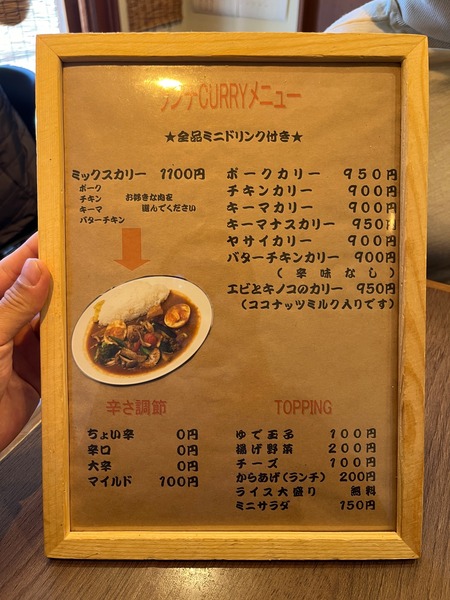 ランチCURRYメニュー
★全品ミニドリンク付き★
ミックスカリー 1100円
ポーク
チキン
キーマ
バターチキン
お好きな肉を
選んでください
ポークカリー 950円
チキンカリー 900円
キーマカリー 900円
キーマナスカリー 950円
ヤサイカリー 900円
バターチキンカリー 900円
(辛味なし)
エビとキノコのカリー 950円
(ココナッツミルク入りです)
辛さ調節
ちょい辛 0円
辛口 0円
大辛 0円
マイルド 100円
TOPPING
ゆで玉子 100円
揚げ野菜 200円
チーズ 100円
からあげ(ランチ) 200円
ライス大盛り 無料
ミニサラダ 150円